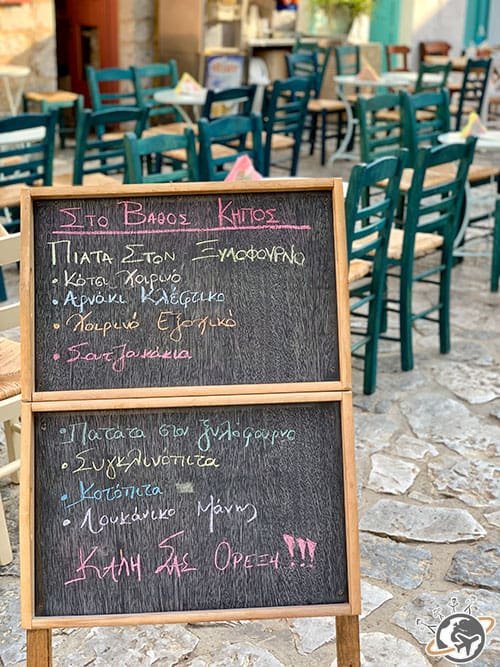 Στο Βαθος Κηπος
Πιατα Στον Ξυλοφουρνο
• Κότσι Χοιρινό
• Αρνάκι Κλέφτικο
• Χοιρινό Εξοχικό
• Σουτζουκάκια
• Πατάτα στον ξυλοφουρνο
• Συγκλινόπιτα
• Κοτόπιτα
• Λουκάνικο Μάνης
Καλη Σας Ορεξη!!!